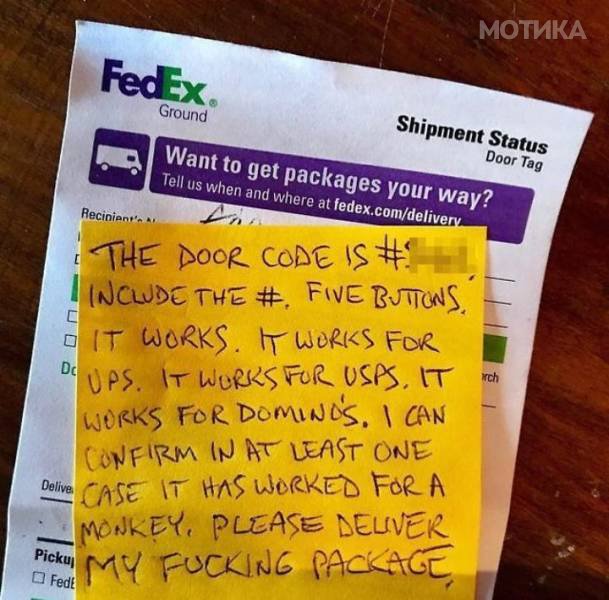 МОТИКА
FedEx®
Ground
Shipment Status
Door Tag
Want to get packages your way?
Tell us when and where at fedex.com/delivery
Recipient's
THE DOOR CODE IS #
INCLUDE THE #. FIVE BUTTONS.
IT WORKS. IT WORKS FOR
UPS. IT WORKS FOR USPS. IT
WORKS FOR DOMINO'S. I CAN
CONFIRM IN AT LEAST ONE
CASE IT HAS WORKED FOR A
MONKEY. PLEASE DELIVER
MY FUCKING PACKAGE.